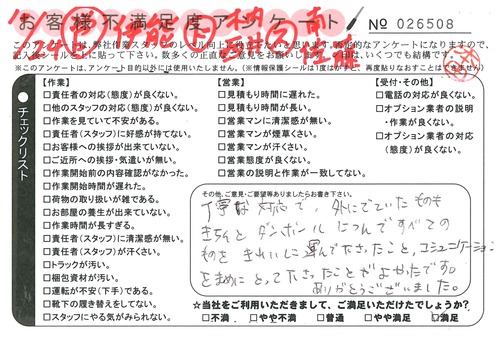 お客様不満足度アンケート
No 026508
このアンケートは、弊社作業スタッフのレベル向上に役立てたいと思います。
※このアンケートは、アンケート目的以外には一切使用いたしません。(※情報保護シールは1度はがすと、再度貼りなおすことはできません)
チェックリスト
【作業】
□責任者の対応(態度)が良くない。
□他のスタッフの対応(態度)が良くない。
□作業を見ていて不安がある。
□責任者(スタッフ)に好感が持てない。
□お客様への挨拶が出来ていない。
□ご近所への挨拶・気遣いが無い。
□作業開始前の内容確認がなかった。
□作業開始時間が遅れた。
□荷物の取り扱いが雑である。
□お部屋の養生が出来ていない。
□作業時間が長すぎる。
□責任者(スタッフ)に清潔感が無い。
□責任者(スタッフ)が汗くさい。
□トラックが汚い。
□梱包資材が汚い。
□運転が不安(下手)である。
□靴下の履き替えをしてない。
□スタッフにやる気がみられない。
【営業】
□見積もり時間に遅れた。
□見積もり時間が長い。
□営業マンに清潔感が無い。
□営業マンが煙草くさい。
□営業マンが汗くさい。
□営業態度が良くない。
□営業の説明と作業が一致してない。
【受付・その他】
□電話の対応が良くない。
□オプション業者の説明
・作業が良くない。
□オプション業者の対応
(態度)が良くない。
その他、ご意見・ご要望等ありましたらお書き下さい。
丁寧な対応で、外にでていたものも
きちんとダンボールにつんですべての
ものをきれいに運んで下さったこと、コミュニケーション
をまめにとって下さったことがよかったです。
ありがとうございました。
☆当社をご利用いただきまして、ご満足いただけたでしょうか?
□不満 □やや不満 □普通 □やや満足 ☑満足